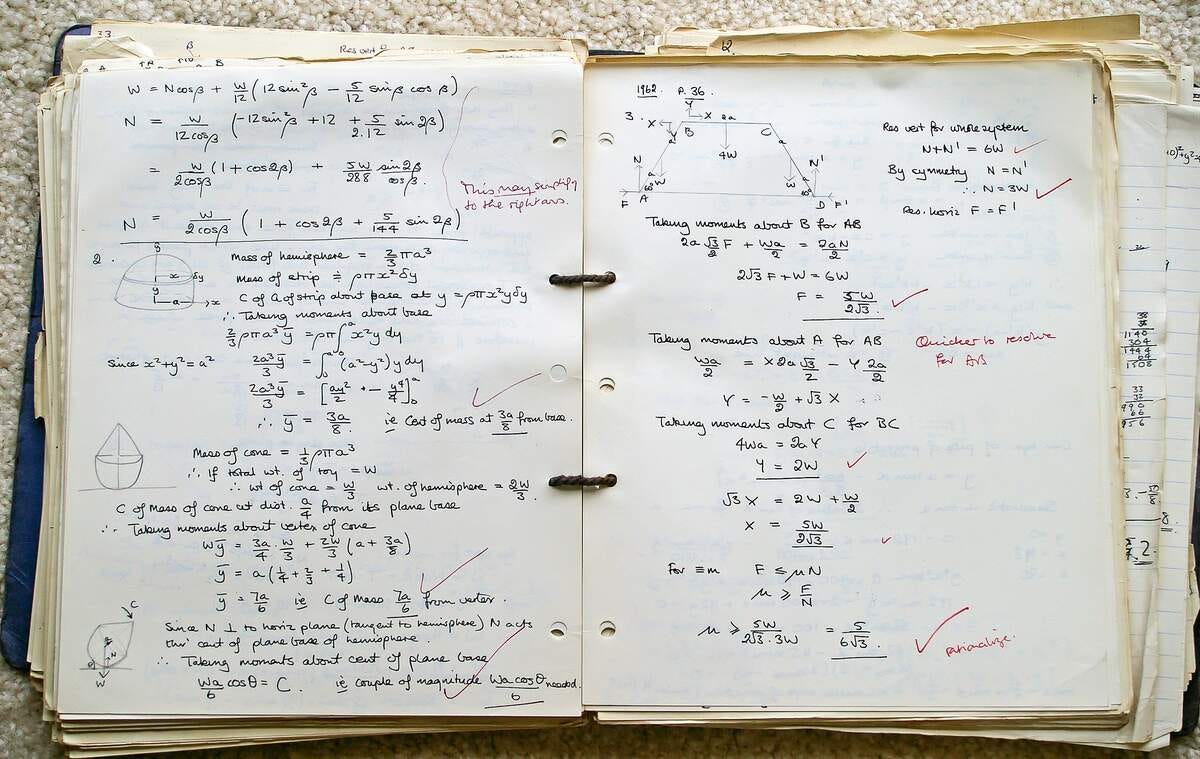 33
Res vert
W = Ncosβ + W/12 (12sin²β − 5/12 sinβ cosβ)
N = W/12cosβ (-12sin²β + 12 + 5/2.12 sin2β)
= W/2cosβ (1 + cos2β) + 5W/288 sin2β/cosβ.
This may simplify
to the right ans.
N = W/2cosβ (1 + cos2β + 5/144 sin2β)
2.
Mass of hemisphere = 2/3 πa³
Mass of strip ≑ ρπx²δy
C of G of strip about base at y = ρπx²yδy
∴ Taking moments about base
2/3 ρπa³ȳ = ρπ∫₀ᵃ x²y dy
Since x²+y² = a² 2a³ȳ/3 = ∫₀ᵃ (a²−y²) y dy
2a³ȳ/3 = [ay²/2 + − y⁴/4]₀ᵃ
∴ ȳ = 3a/8. ie Cent of mass at 3a/8 from base.
Mass of cone = 1/3 ρπa³
∴ if total wt. of toy = W
∴ wt of cone = W/3 wt. of hemisphere = 2W/3.
C of Mass of cone at dist. a/4 from its plane base
∴ Taking moments about vertex of cone
Wȳ = 3a/4 . W/3 + 2W/3 (a + 3a/8)
ȳ = a(1/4 + 2/3 + 1/4)
ȳ = 7a/6 ie C of Mass 7a/6 from vertex.
C
N
θ
W
Since N ⊥ to horiz plane (tangent to hemisphere) N acts
thro' cent of plane base of hemisphere.
∴ Taking moments about cent of plane base
Wa/6 cosθ = C. ie couple of magnitude Wacosθ/6 needed.
1962. P. 36.
3.
Y
X X 2a
B C
a a
4W
N N'
a W W a
60° 60°
F A D F'
Res vert for whole system
N+N' = 6W
By symmetry N = N'
∴ N = 3W
Res. horiz F = F'
Taking moments about B for AB
2a√3/2 F + Wa/2 = 2aN/2
2√3F + W = 6W
F = 5W/2√3.
Taking moments about A for AB
Quicker to resolve
for AB
Wa/2 = X2a√3/2 − Y 2a/2
Y = −W/2 + √3 X
Taking moments about C for BC
4Wa = 2aY
Y = 2W
√3 X = 2W + W/2
X = 5W/2√3
for ≡m F ≤ μN
μ ≥ F/N
μ ≥ 5W/2√3.3W = 5/6√3.
rationalize.